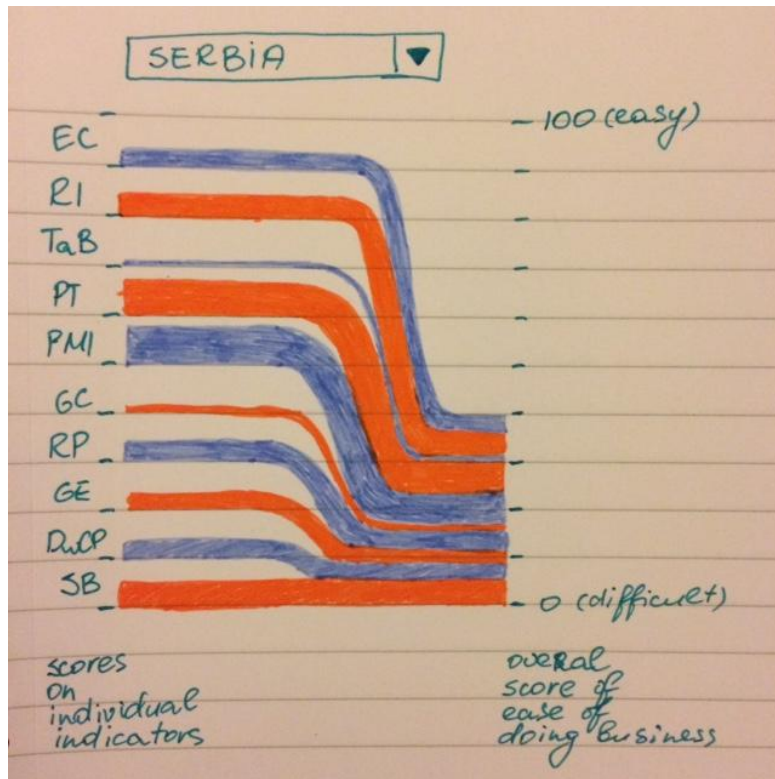 SERBIA
100 (easy)
EC
RI
TaB
PT
PMI
GC
RP
GE
DwCP
SB
0 (difficult)
scores
on
individual
indicators
overal
score of
ease of
doing Business